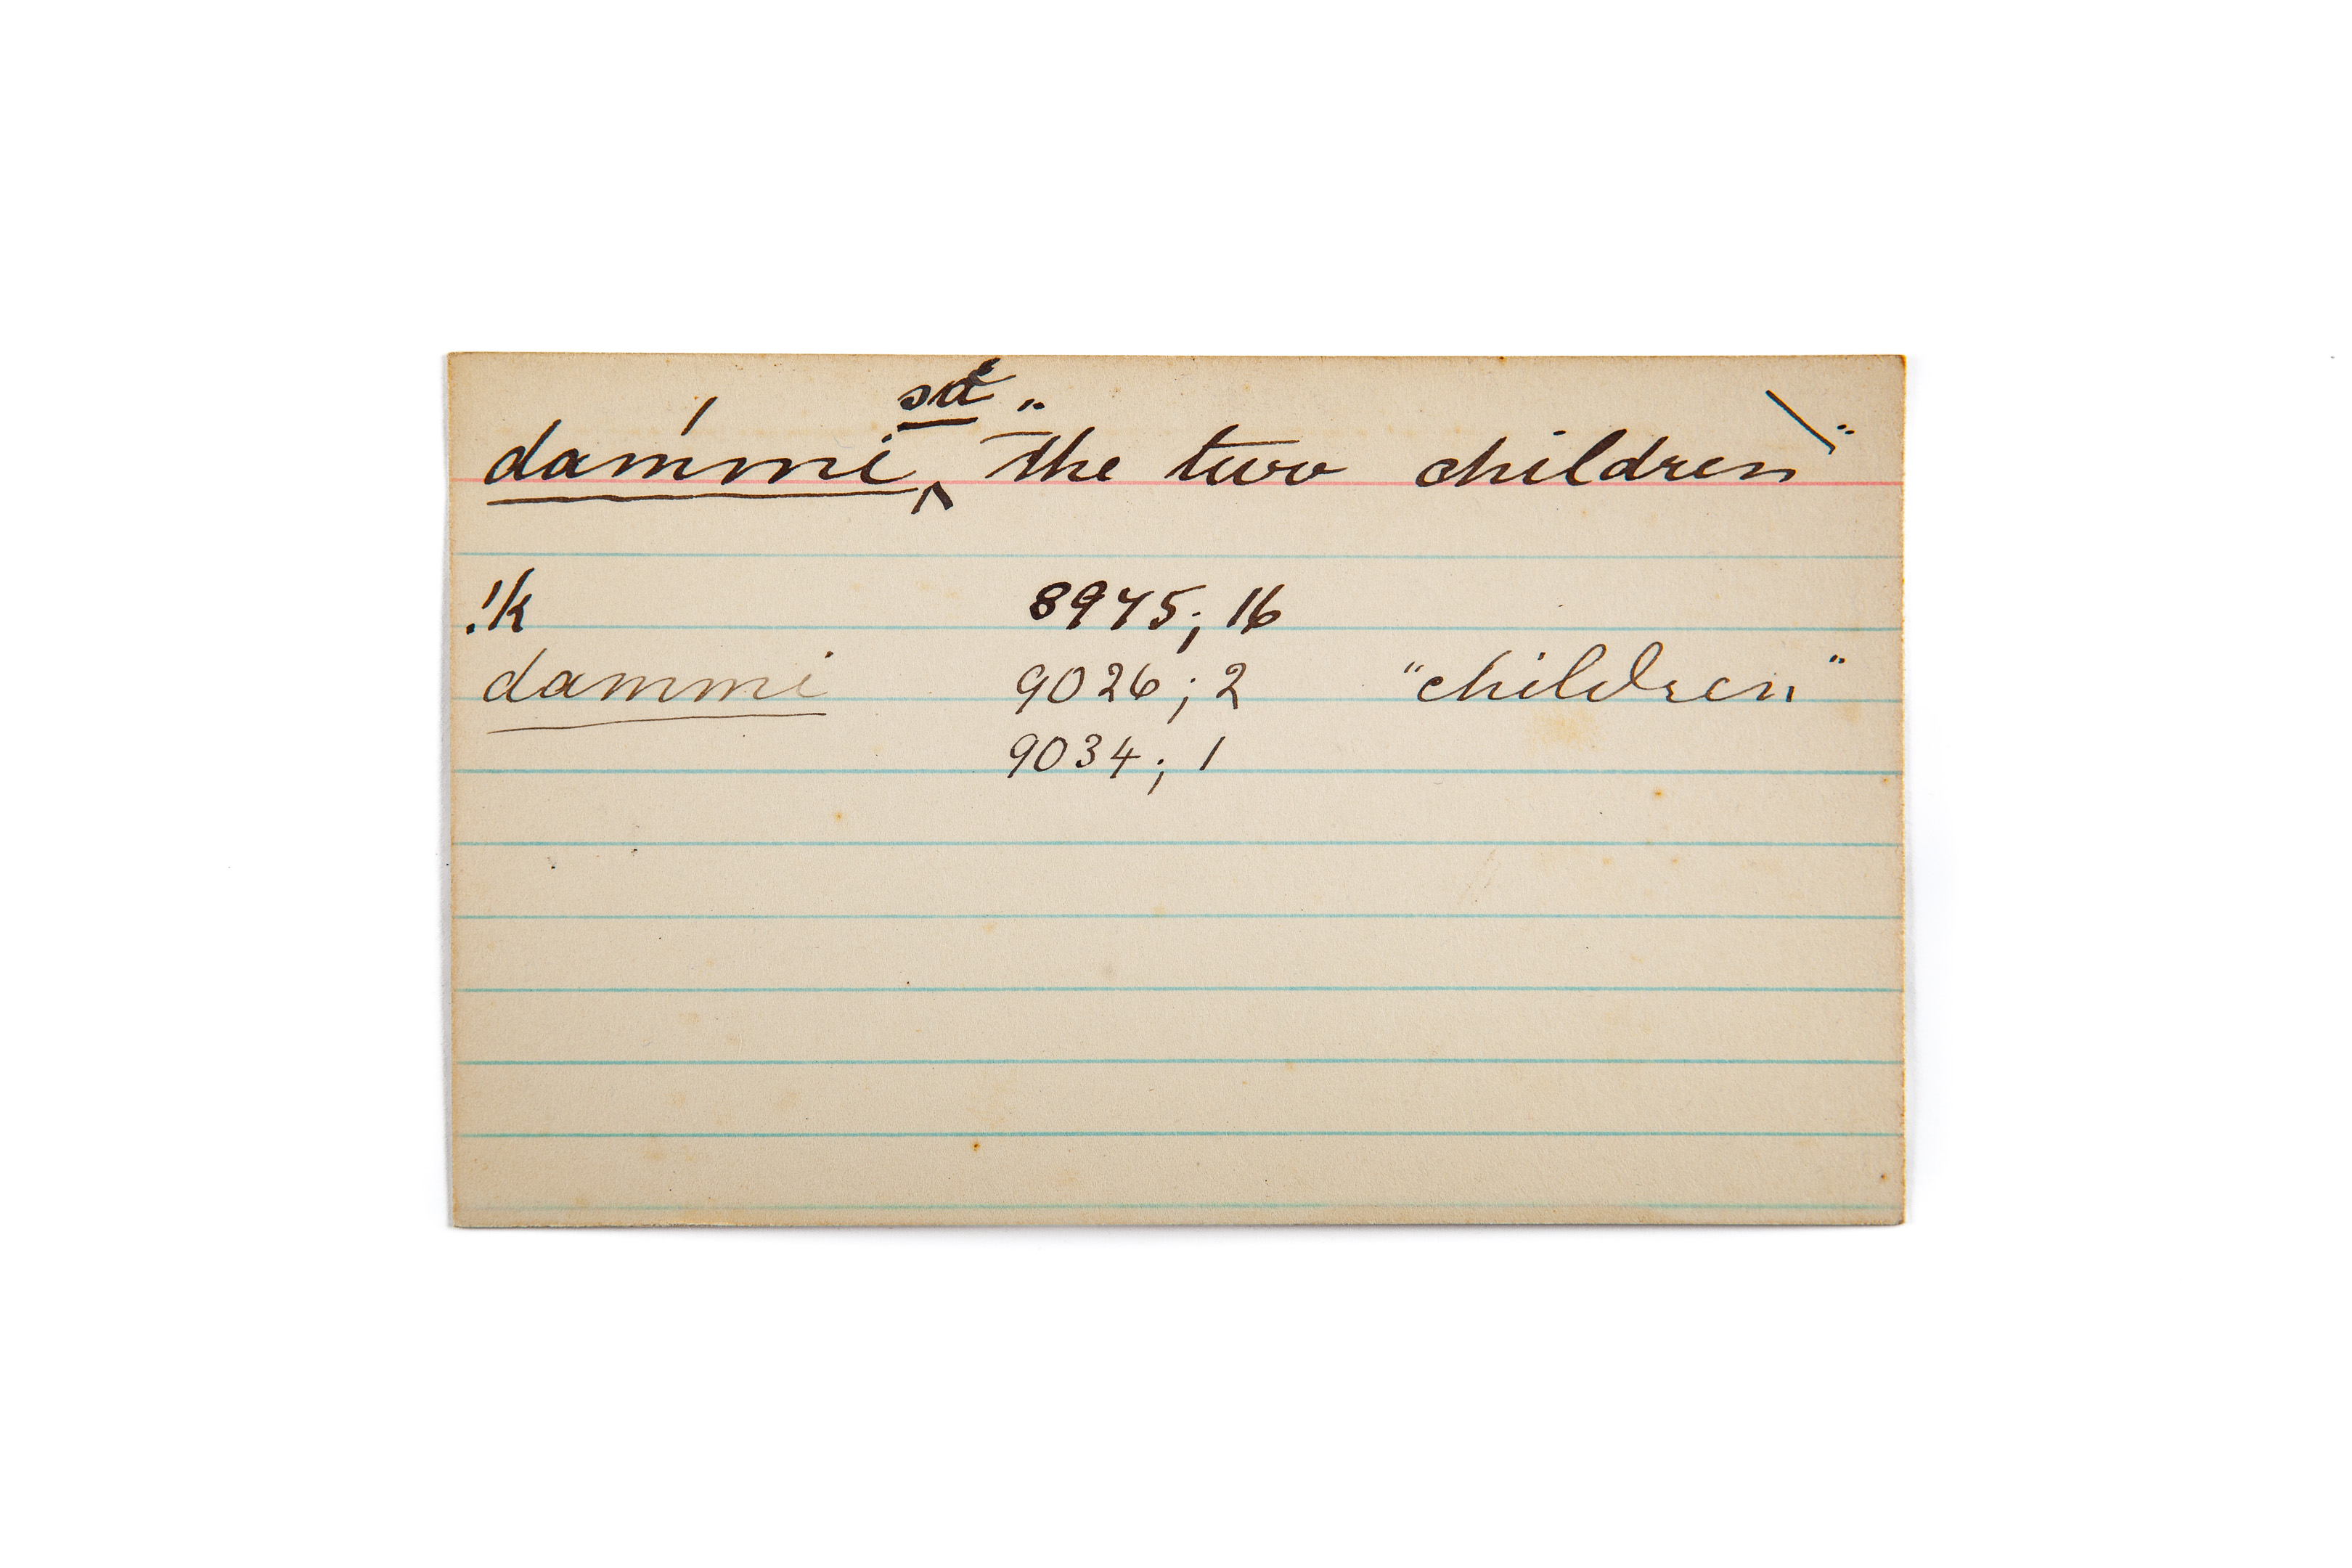 dammi sá "the two children"
!k 8975; 16
dammi 9026; 2 "children"
9034; 1